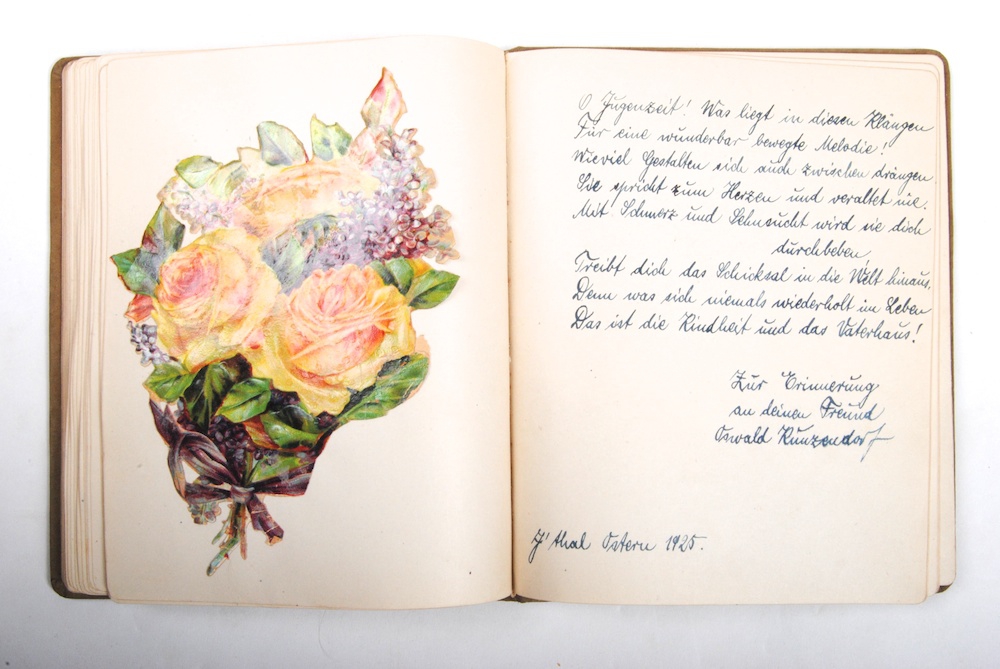 O Jugenzeit! Was liegt in diesen Klängen
Für eine wunderbar bewegte Melodie!
Wieviel Gestalten sich auch zwischen drängen
Sie spricht zum Herzen und veraltet nie.
Mit Schmerz und Sehnsucht wird sie dich
durchbeben,
Treibt dich das Schicksal in die Welt hinaus.
Denn was sich niemals wiederholt im Leben
Das ist die Kindheit und das Vaterhaus!
Zur Erinnerung
an deinen Freund
Oswald Kunzendorf
J'thal Ostern 1925.